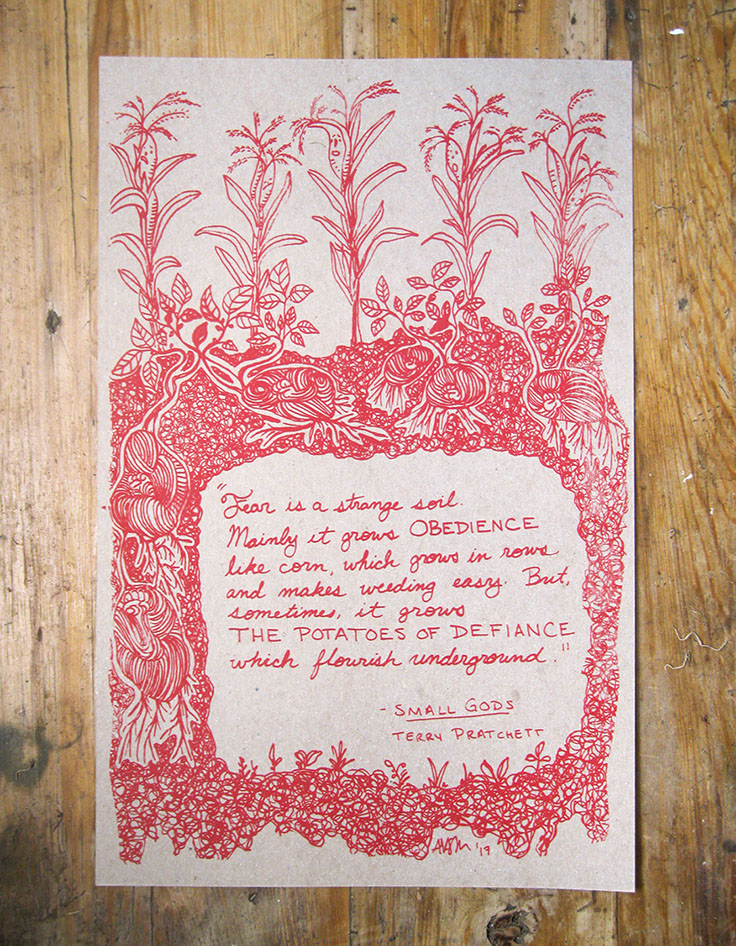 "Fear is a strange soil.
Mainly it grows OBEDIENCE
like corn, which grows in rows
and makes weeding easy. But,
sometimes, it grows
THE POTATOES OF DEFIANCE
which flourish underground."
- SMALL GODS
TERRY PRATCHETT
'19